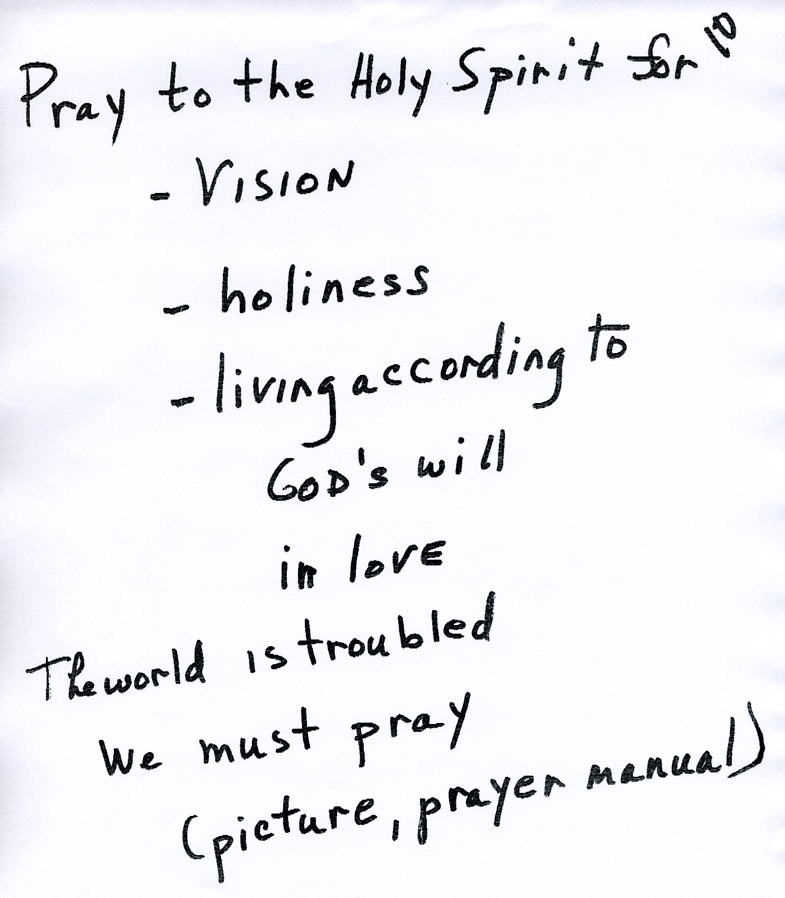 Pray to the Holy Spirit for 10
- VISION
- holiness
- living according to
GOD's will
in love
The world is troubled
We must pray
(picture, prayer manual)